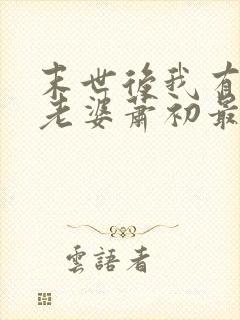 末世後我有
老婆蕭初最
雲語者